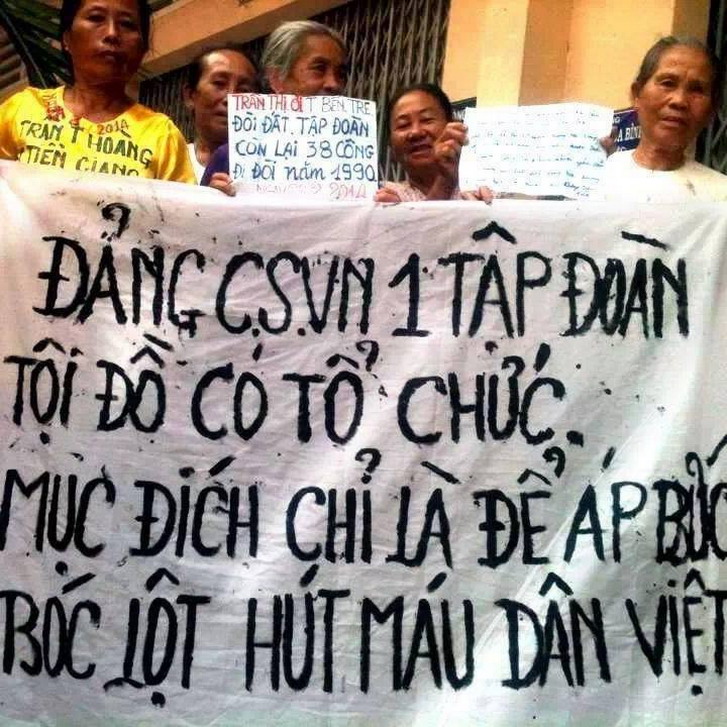 2014
TRẦN T HOANG
TIỀN GIANG
TRẦN THỊ ÚT BẾN TRE
ĐÒI ĐẤT. TẬP ĐOÀN
CÒN LẠI 38 CÔNG
ĐI ĐÒI năm 1990
2014
ĐẢNG C.S.VN 1 TẬP ĐOÀN
TỘI ĐỒ CÓ TỔ CHỨC.
MỤC ĐÍCH CHỈ LÀ ĐỂ ÁP BỨC
BÓC LỘT HÚT MÁU DÂN VIỆT